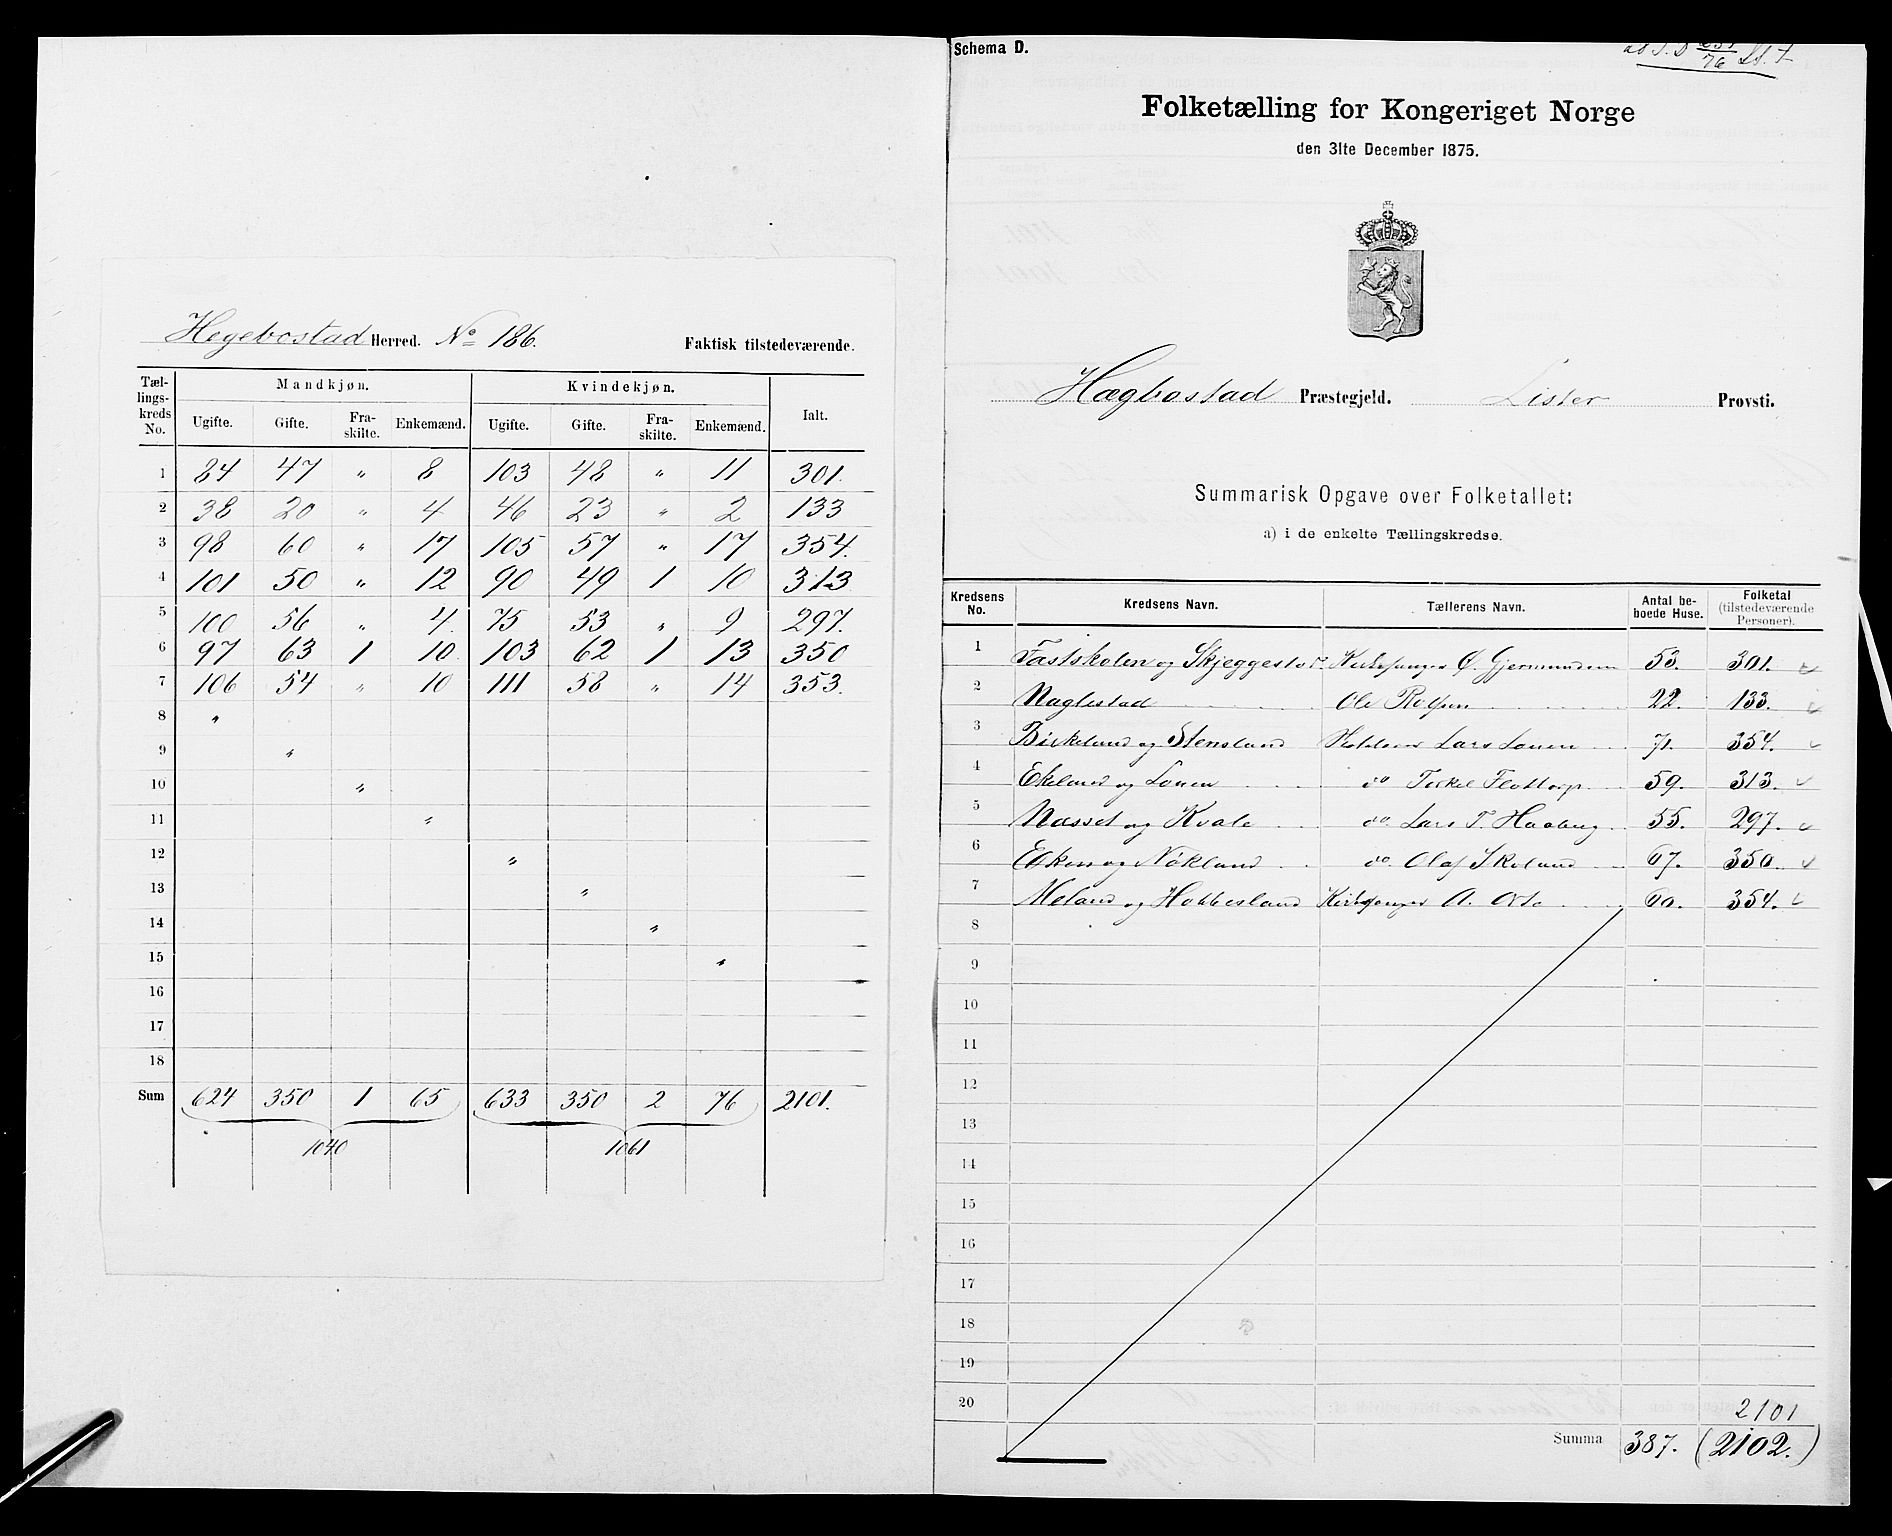 Hegebostad Herred. No 186. Faktisk tilstedeværende.
Tællingskreds No. Mandkjøn. Kvindekjøn. Ialt.
Ugifte. Gifte. Fraskilte. Enkemænd. Ugifte. Gifte. Fraskilte. Enkemænd.
1 84 47 " 8 103 48 " 11 301.
2 38 20 " 4 46 23 " 2 133
3 98 60 " 17 105 57 " 17 354.
4 101 50 " 12 90 49 1 10 313
5 100 56 " 4 75 53 " 9 297.
6 97 63 1 10 103 62 1 13 350
7 106 54 " 10 111 58 " 14 353.
8 "
9 "
10 "
11 "
12 "
13 "
14 "
15 "
16
17
18
Sum 624 350 1 65 633 350 2 76 2101.
1040 1061
Schema D.
76
Folketælling for Kongeriget Norge
den 31te December 1875.
Hægbostad Præstegjeld. Lister Provsti.
Summarisk Opgave over Folketallet:
a) i de enkelte Tællingskredse.
Kredsens No. Kredsens Navn. Tællerens Navn. Antal beboede Huse. Folketal (tilstedeværende Personer).
1 Fastskolen og Skjeggestad Kirkesanger O. Gjermundsen 53. 301.
2 Naglestad Ole 22. 133.
3 Birkeland og Stensland Lars Lauen 71. 354.
4 Ekeland og Lauen do Terkel Flottorp 59. 313.
5 Næsset og Kvale do. Lars T. Haaberg 55. 297.
6 Eiken og Nökland do. Olaf Skeland 67. 350.
7 Meland og Hobbesland Kirkesanger A. 60. 354.
8
9
10
11
12
13
14
15
16
17
18
19
20 2101
Summa 387. (2102.)